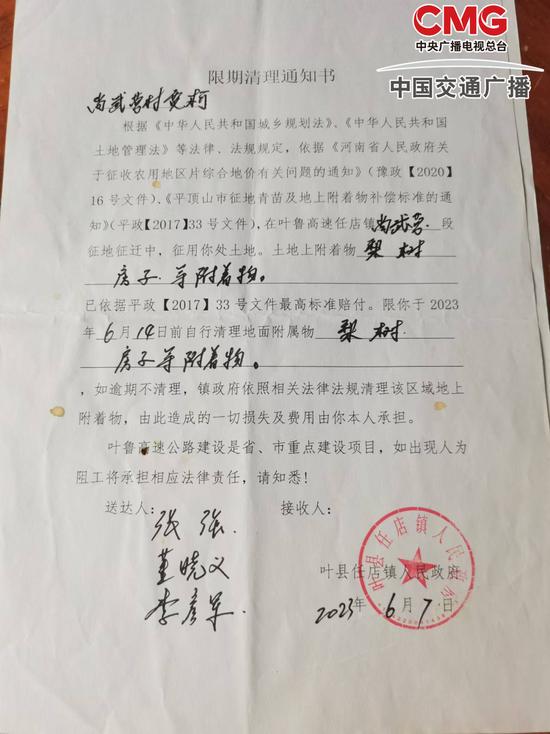 CMG
中央广播电视总台
中国交通广播
限期清理通知书
尚武营村
根据《中华人民共和国城乡规划法》、《中华人民共和国
土地管理法》等法律、法规规定，依据《河南省人民政府关
于征收农用地区片综合地价有关问题的通知》（豫政【2020】
16号文件）、《平顶山市征地青苗及地上附着物补偿标准的通
知》（平政【2017】33号文件），在叶鲁高速任店镇尚武营.段
征地征迁中，征用你处土地。土地上附着物 梨树
房子.等附着物。
已依据平政【2017】33号文件最高标准赔付。限你于2023
年6月14日前自行清理地面附属物 梨树.
房子等附着物。
，如逾期不清理，镇政府依照相关法律法规清理该区域地上
附着物，由此造成的一切损失及费用由你本人承担。
叶鲁高速公路建设是省、市重点建设项目，如出现人为
阻工将承担相应法律责任，请知悉！
送达人： 接收人：
张强.
董晓义
李彦军.
叶县任店镇人民政府
叶县任店镇人民政府
2023年6月7.日